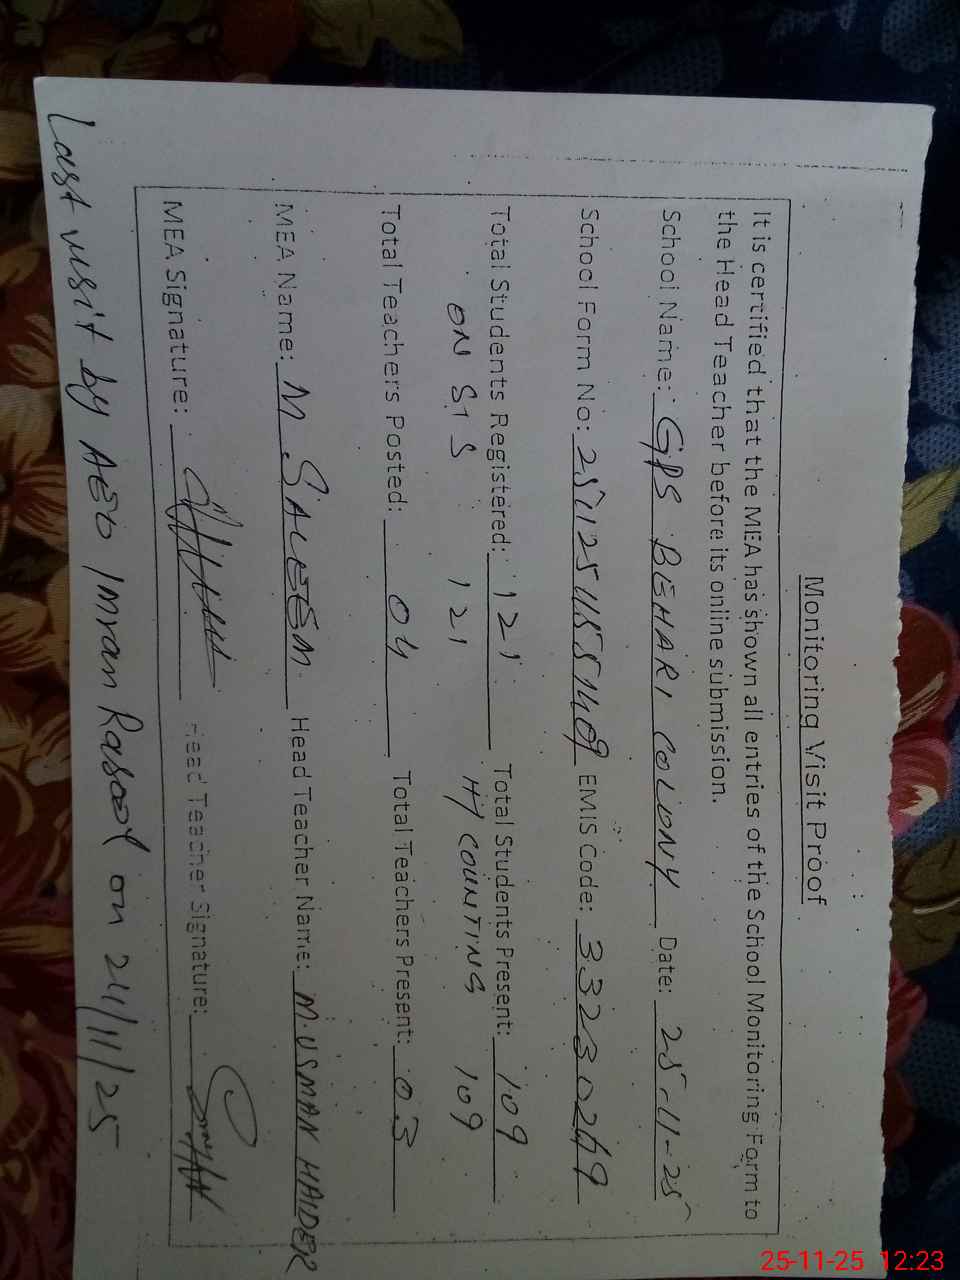 Monitoring Visit Proof
It is certified that the MEA has shown all entries of the School Monitoring Form to
the Head Teacher before its online submission.
School Name: GPS BEHARI COLONY Date: 25-11-25
School Form No: EMIS Code: 33230249
Total Students Registered: 121 Total Students Present: 109
ON SIS 121 H/COUNTING 109
Total Teachers Posted: 04 Total Teachers Present: 03
MEA Name: M SALEEM Head Teacher Name: M. USMAN HAIDER
MEA Signature: Head Teacher Signature:
Last visit by AEO Imran Rasool on 24/11/25
25-11-25 12:23